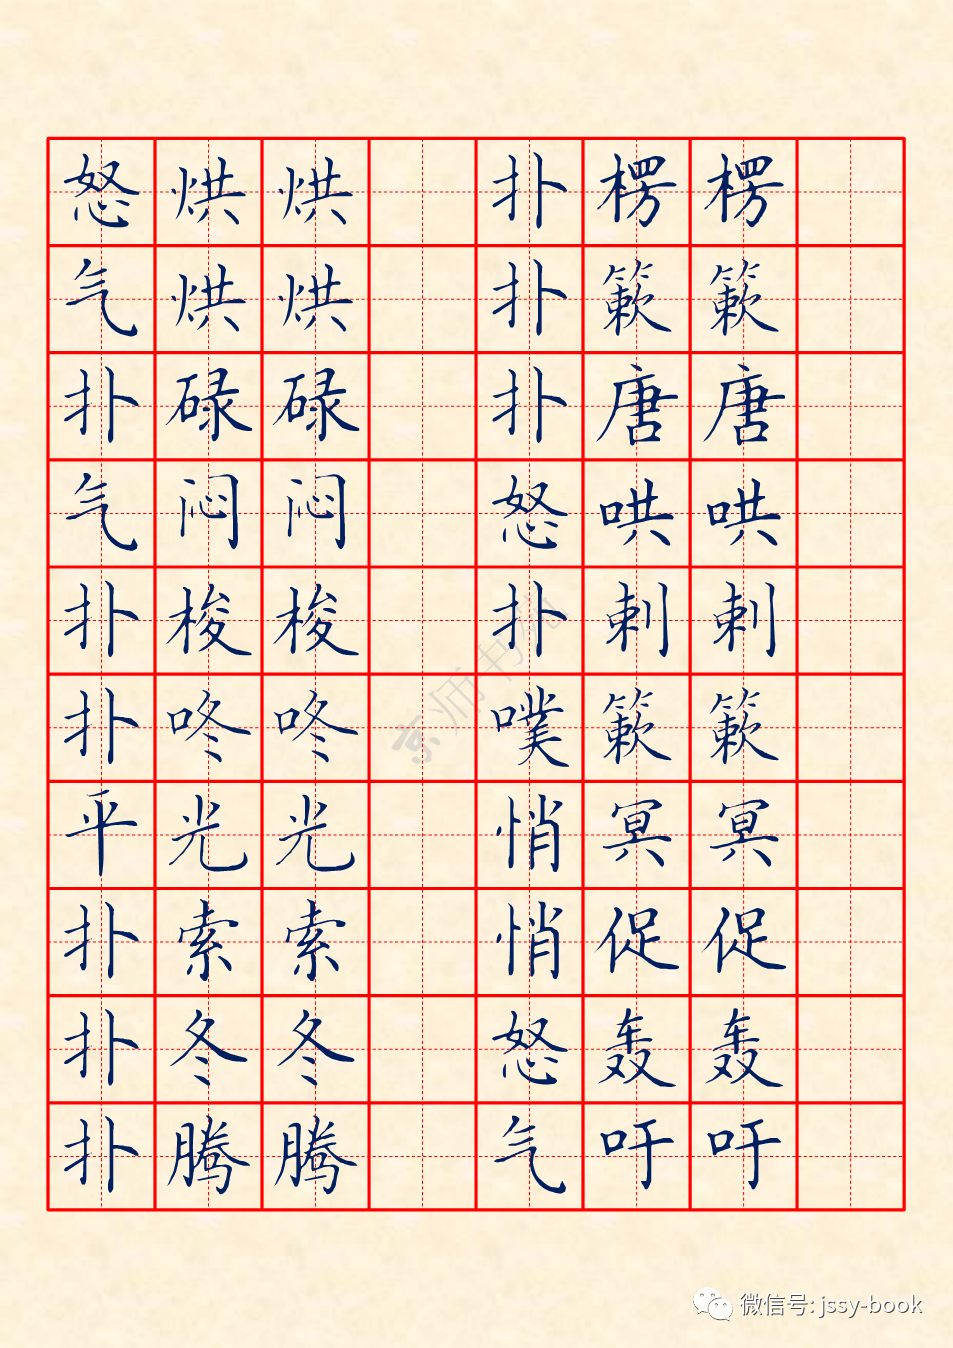 怒烘烘 扑楞楞
气烘烘 扑簌簌
扑碌碌 扑唐唐
气闷闷 怒哄哄
扑梭梭 扑剌剌
扑咚咚 噗簌簌
平光光 悄冥冥
扑索索 悄促促
扑冬冬 怒轰轰
扑腾腾 气吁吁
京师书苑
微信号: jssy-book